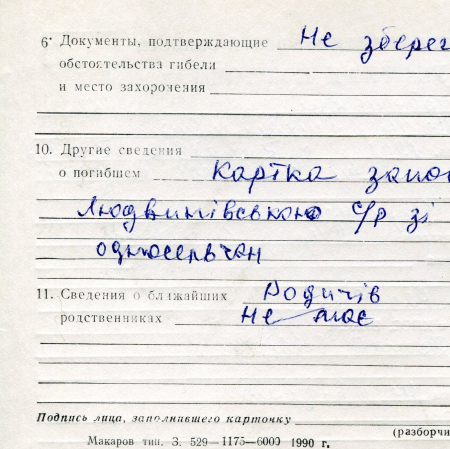 6• Документы, подтверждающие Не зберег
обстоятельства гибели
и место захоронения
10. Другие сведения
о погибшем Картка запов
Людвинівською с/р зі
односельчан
11. Сведения о ближайших Родичів
родственниках Не має
Подпись лица, заполнившего карточку
(разборчи
Макаров тип. З. 529—1175—6000 1990 г.